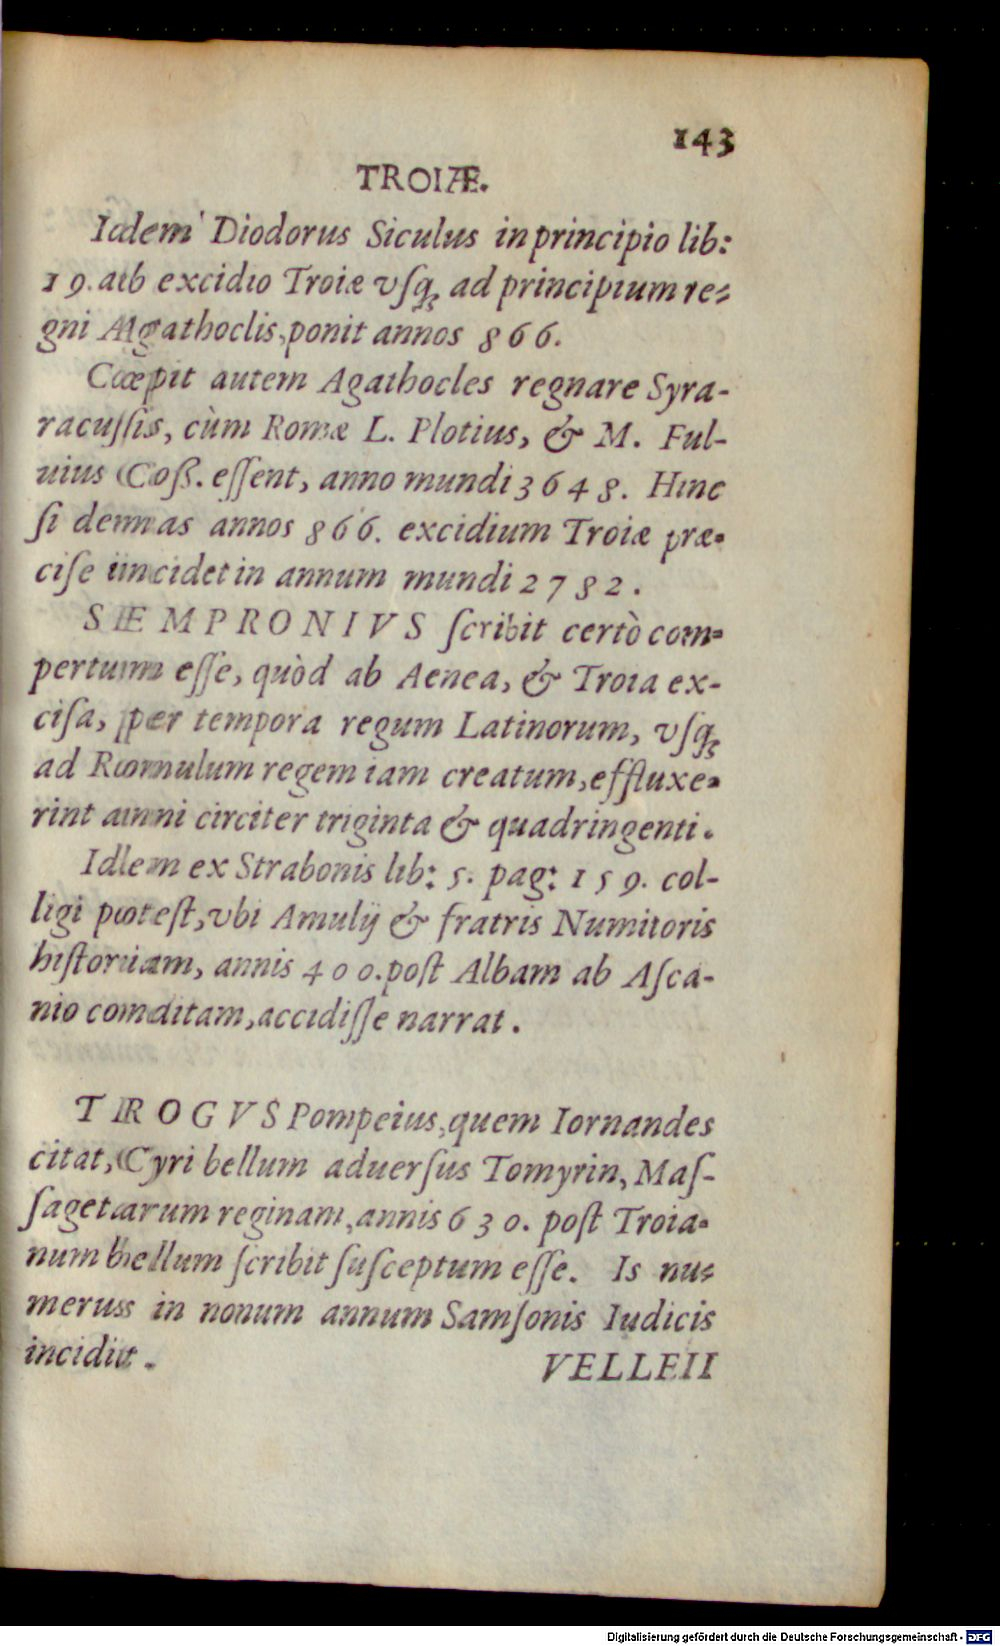 143
TROIÆ.
Idem Diodorus Siculus in principio lib:
19. ab excidio Troiæ vſq; ad principium re-
gni Agathoclis, ponit annos 866.
Cœpit autem Agathocles regnare Syra-
racuſſis, cùm Romæ L. Plotius, & M. Ful-
uius Coß. eſſent, anno mundi 3648. Hinc
ſi demas annos 866. excidium Troiæ præ-
ciſe incidet in annum mundi 2782.
SEMPRONIVS ſcribit certò com-
pertum eſſe, quòd ab Aenea, & Troia ex-
ciſa, per tempora regum Latinorum, vſq;
ad Romulum regem iam creatum, effluxe-
rint anni circiter triginta & quadringenti.
Idem ex Strabonis lib: 5. pag: 159. col-
ligi poteſt, vbi Amulij & fratris Numitoris
hiſtoriam, annis 400. poſt Albam ab Aſca-
nio conditam, accidiſſe narrat.
TROGVS Pompeius, quem Iornandes
citat, Cyri bellum aduerſus Tomyrin, Maſ-
ſagetarum reginam, annis 630. poſt Troia-
num bellum ſcribit ſuſceptum eſſe. Is nu-
merus in nonum annum Samſonis Iudicis
incidit.
VELLEII
Digitalisierung gefördert durch die Deutsche Forschungsgemeinschaft - DFG